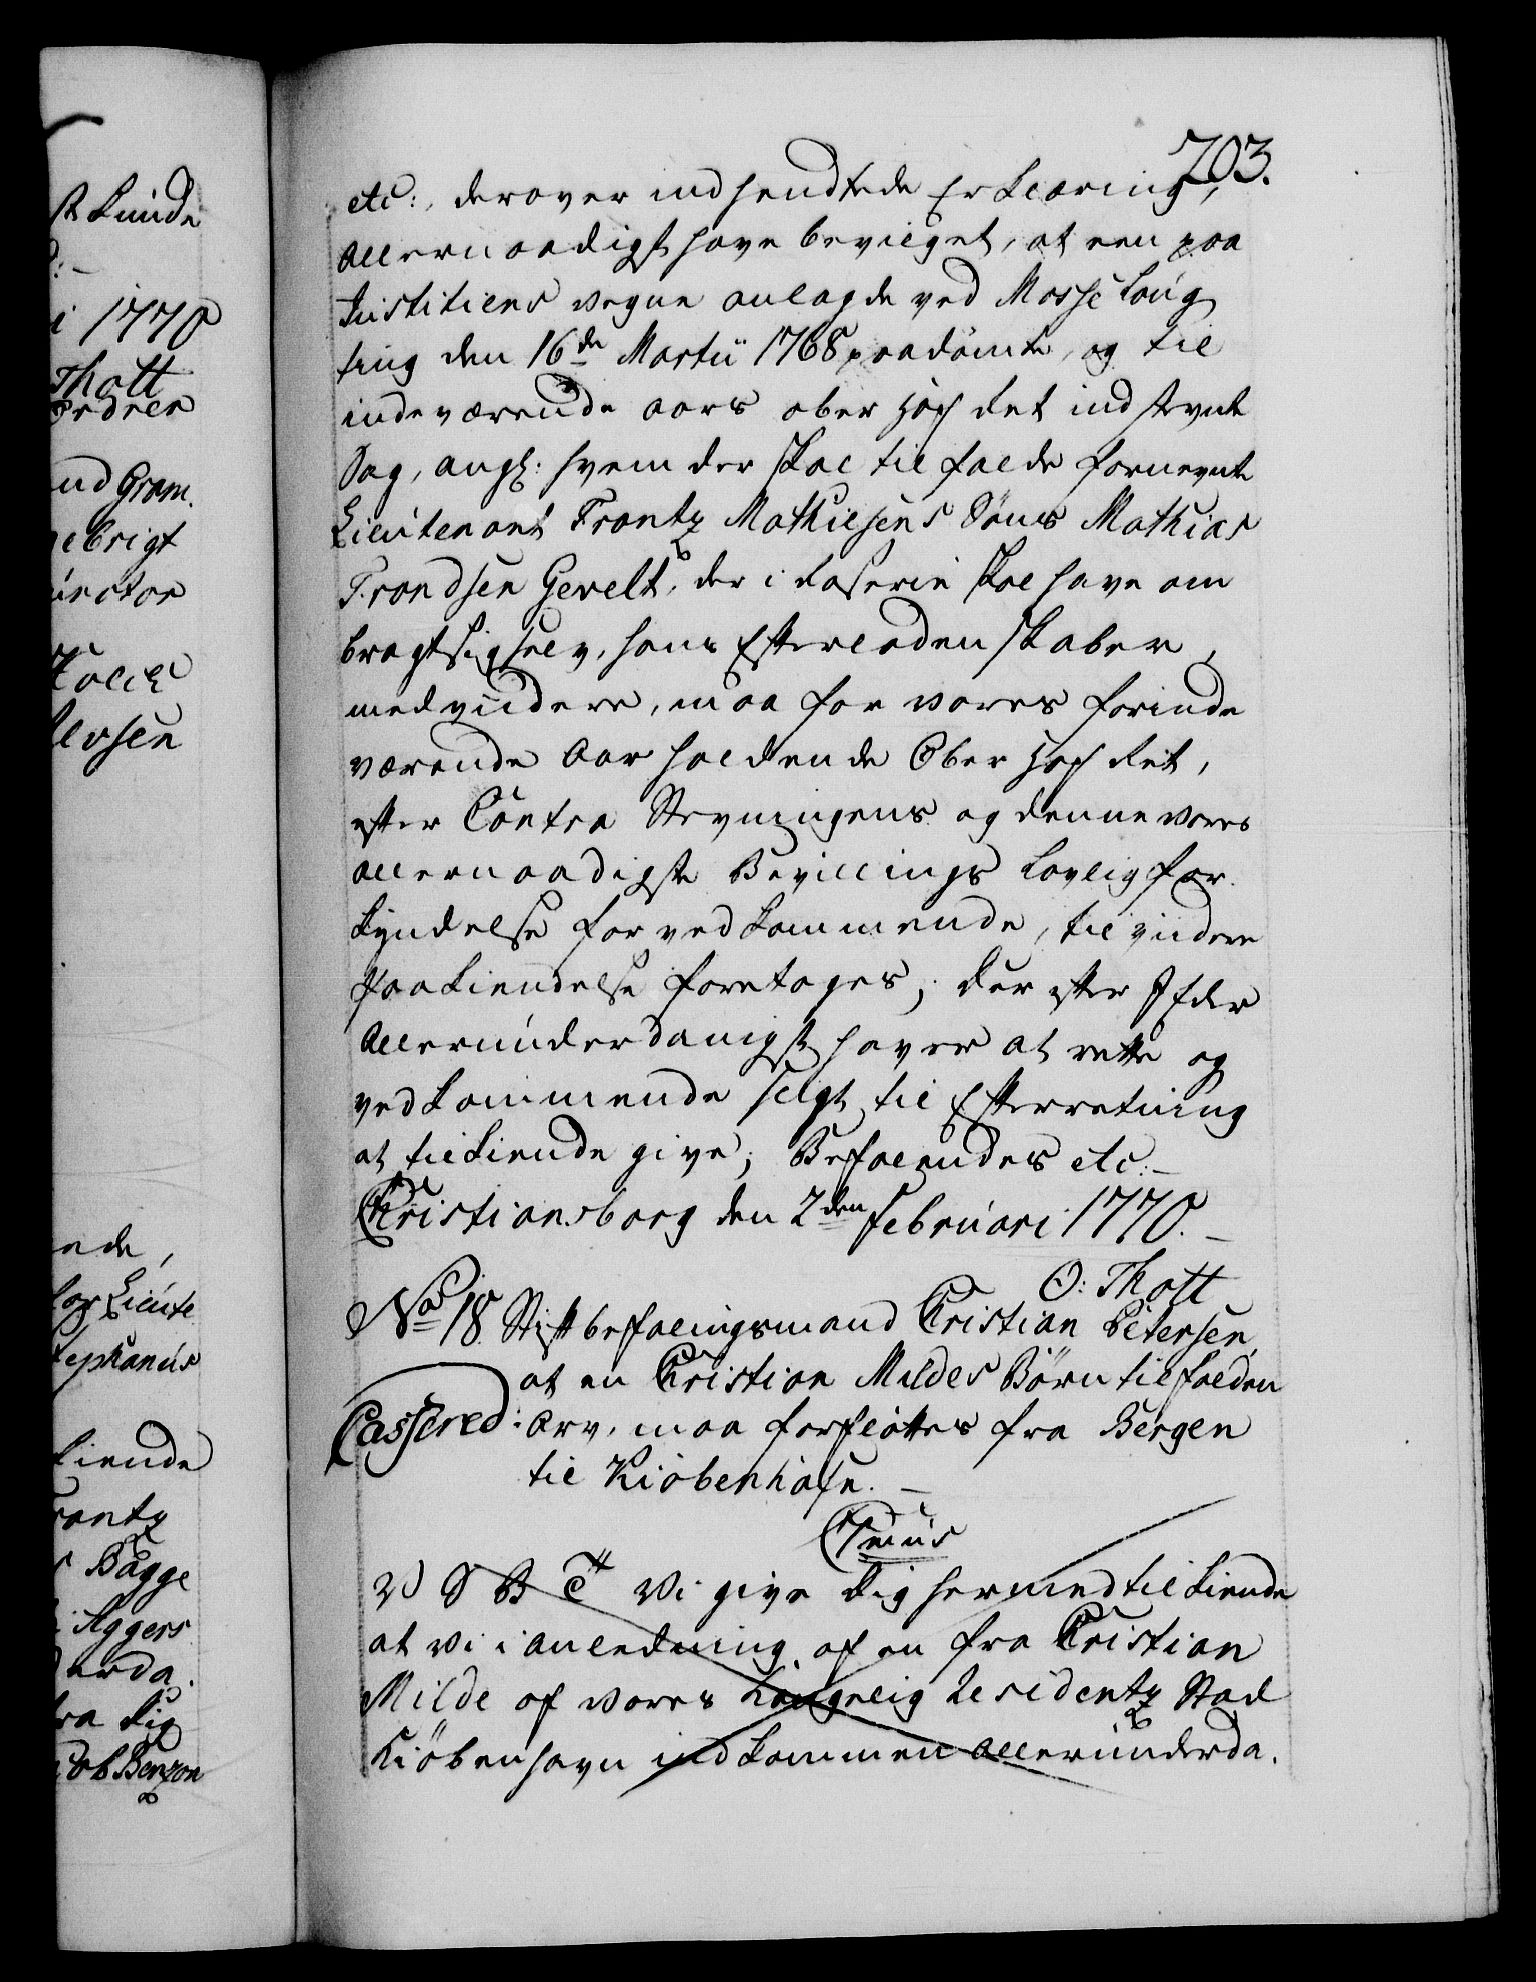 703.
etc:, derover indsendtede Erklæring,
allernaadigst have bevilget, at een paa
Justitiens vegne anlagde ved Mosse Laug
ting den 16de Martii 1768 paadömte, og til
indeværende aars ober Hof Ret indstevnte
Sag, angl: hvem der skal tilfalde fornevnte
Lieutenant Frantz Mathiesens Söns Mathias
Frandsen Gerelt, der i Raserie skal have om
bragt sig selv, hans Efterladenskaber,
med viidere, maa for vores forinde
værende Aar holdende Ober Hof Ret,
efter Contra Stevningens og denne vores
allernaadigste Bevillings lovlig for-
kyndelse for vedkommende, til viidere
paakiendelse foretages; Der efter I Eder
allerunderdanigst haver at rette og
vedkommende seligt til Efterretning
at tilkiende give; Befalendes etc:-
Christiansborg den 2den Februari 1770.-
O: Thott
No 18. Stiftbefalingsmand Christian Petersen,
at en Christian Mildes Börn tilfalden
Cassered: Arv, maa forflöttes fra Bergen
til Kiöbenhafn.-
C7mus
V S B C# Vi give dig hermed tilkiende
at vi i anledning af en fra Christian
Milde af vores Kongelig Residentz Stad
Kiöbenhavn indkommen allerunderda-
st Lunde
i 1770
Thott
ordner
und Gram.
gebrigt
ructor
Lieute
Stephanus
kiende
Frantz
Bagge
Aggers
nerda.
fra dig
Jacob Benzon